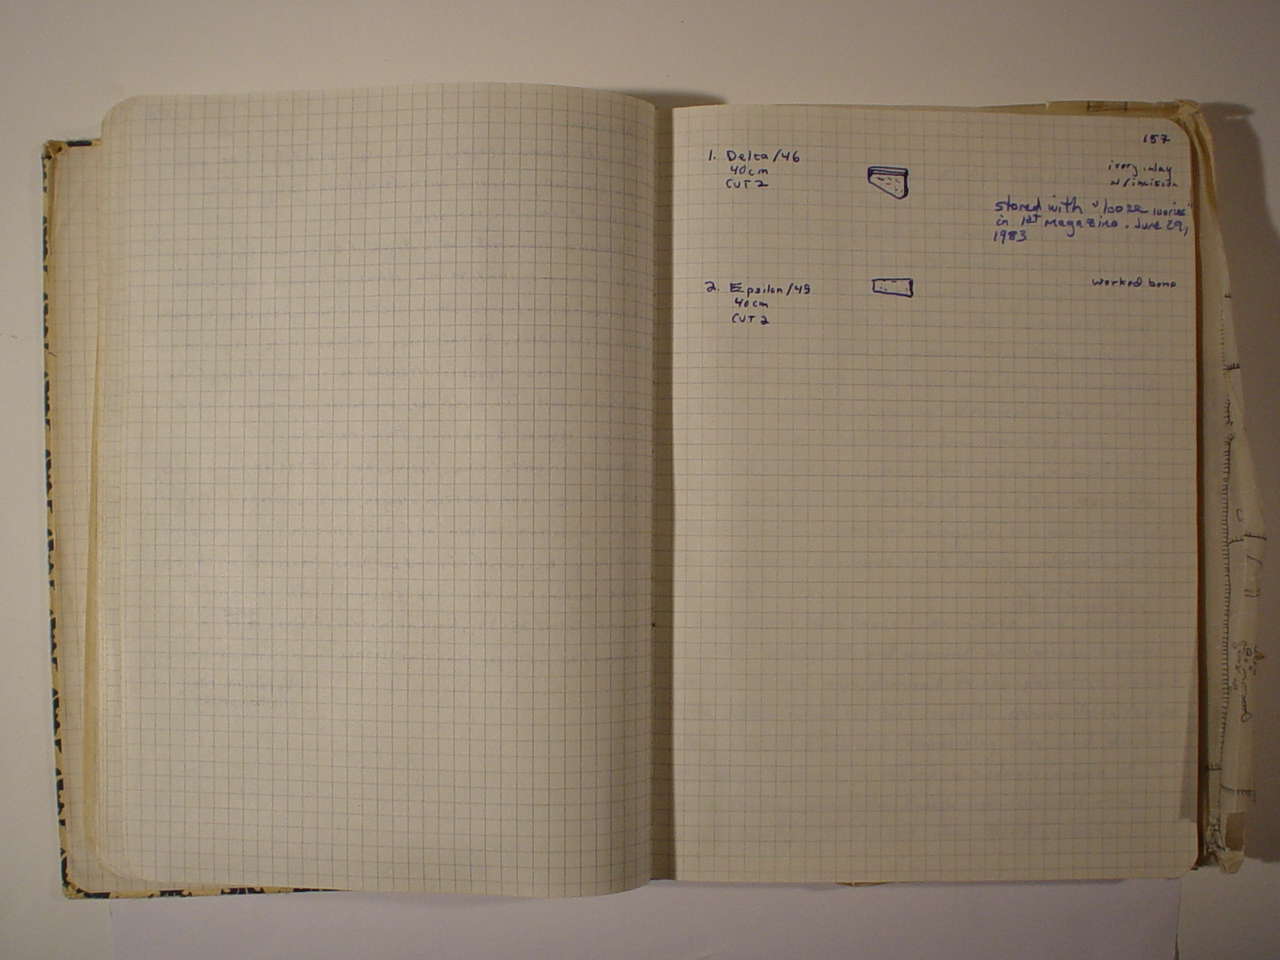 157
1. Delta/46
40cm
CUT 2
ivory inlay
w/incision
stored with "loose ivories"
in 1st magazino. June 29,
1983
2. Epsilon/49
40cm
CUT 2
worked bone